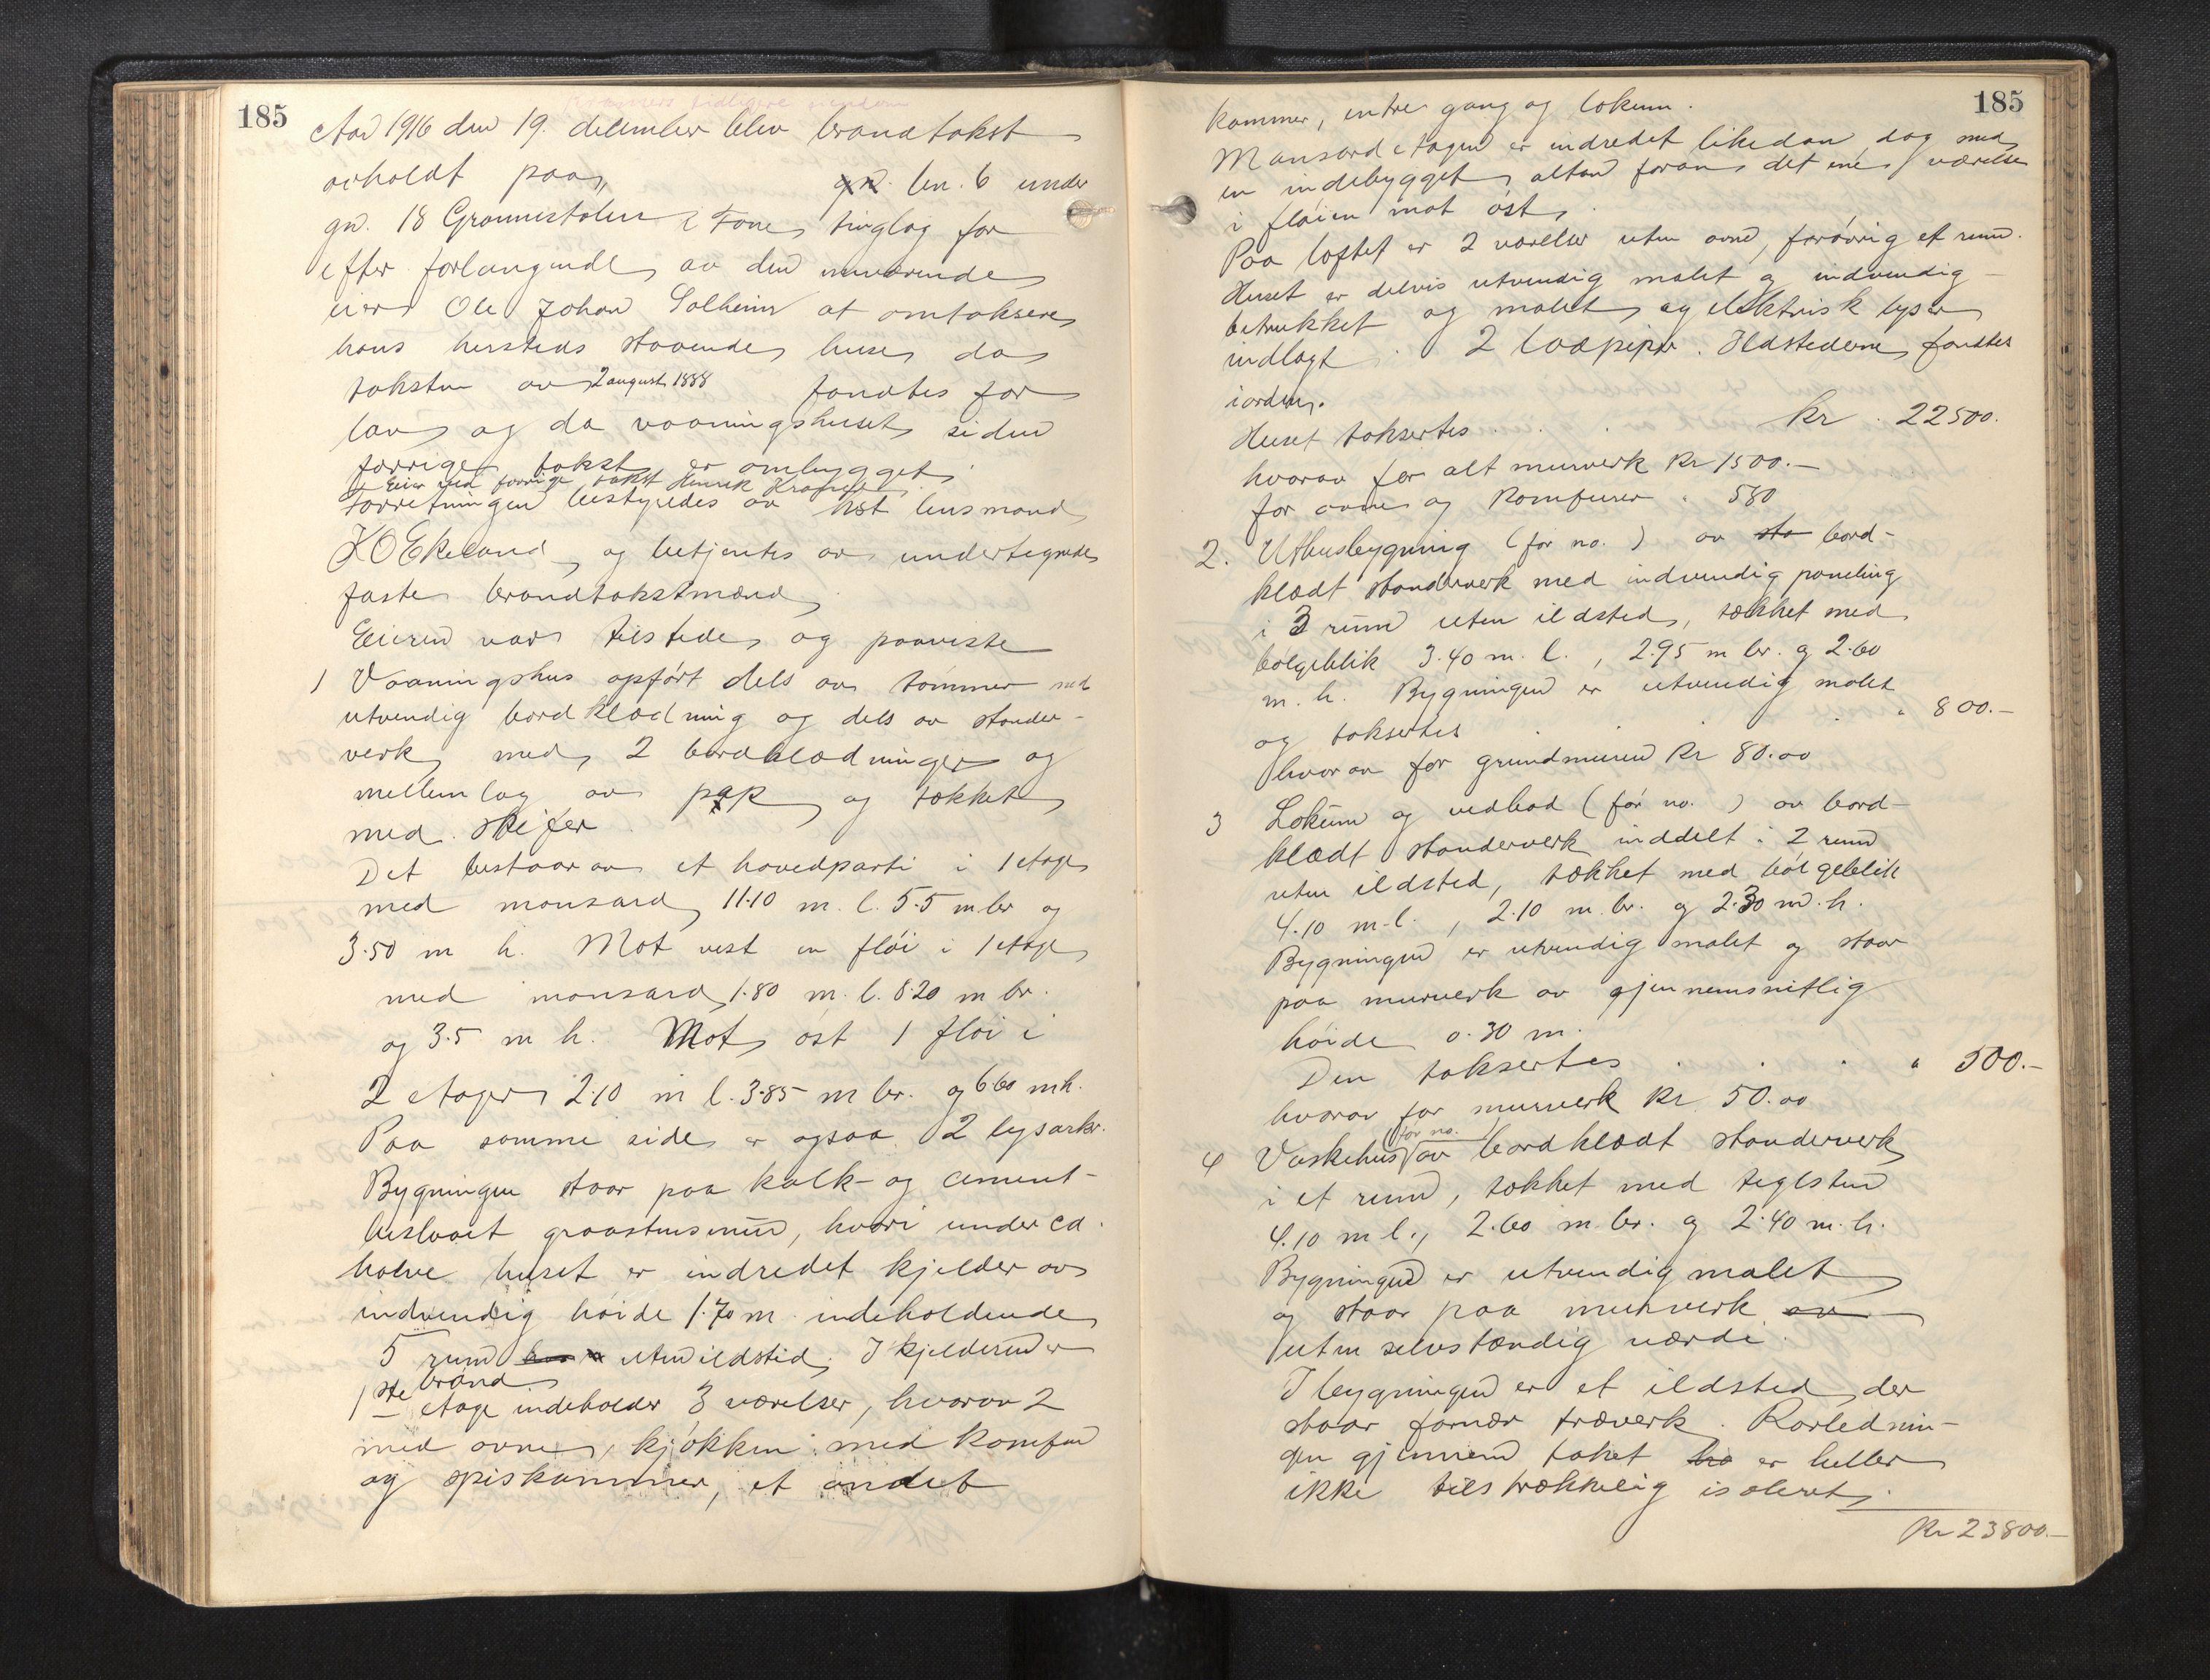 185
Kramers tidligere eiendom
Aar 1916 den 19. december blev brandtakst
avholdt paa bn. 6 under
gn. 18 Grannestølen i Fane tinglag for
efter forlangende av den nuværende
eier Ole Johan Solheim at omtaksere
hans hersteds staaende huse da
taksten av 2 august 1888 fandtes for
lav og da vaaningshuset siden
forrige takst er ombygget.
Eier ved forrige takst Henrik Kramer
Forretningen bestyredes av kst lensmand
K O Ekeland og betjentes av undertegnede
faste brandtakstmænd
Eieren var tilstede og paaviste
1 Vaaningshus opført dels av tømmer med
utvendig bordklædning og dels av stender-
verk med 2 bordklædninger og
mellemlag av pap og tækket
med skifer
Det bestaar av et hovedparti i 1 etage
med mansard 11.10 m. l. 5.5 m br og
3.50 m h. Mot vest en fløi i 1 etage
med mansard 1.80 m. l. 8.20 m br.
og 3.5 m h. Mot øst 1 fløi i
2 etager 2.10 m l. 3.85 m br. og 6.60 m h.
Paa samme side er ogsaa 2 lysarker.
Bygningen staar paa kalk- og cement-
beslaaet graastensmur, hvori under ca.
halve huset er indredet kjelder av
indvendig høide 1.70 m. indeholdende
5 rum uten ildsted. I kjelderen er
brønd
1ste etage indeholder 3 værelser, hvorav 2
med ovne, kjøkken med komfur
og spiskammer, et andet
185
kammer, entre gang og lokum.
Mansardetagen er indredet likedan, dog med
en indebygget altan foran det ene værelse
i fløien mot øst.
Paa loftet er 2 værelser uten ovne, forøvrig et rum.
Huset er delvis utvendig malet og indvendig
betrukket og malet og elektrisk lys er
indlagt. 2 løspiper. Ildstederne fandtes
iorden.
Huset taksertes . . . kr. 22500.
hvorav for alt murverk Kr 1500.—
for ovne og komfurer " 580
2. Uthusbygning (før no. ) av sta bord-
klædt stenderverk med indvendig paneling
i 3 rum uten ildsted, tækket med
bølgeblik 3.40 m. l., 2.95 m br. og 2.60
m. h. Bygningen er utvendig malet
og taksertes . . " 800.—
hvorav for grundmuren Kr 80.00
3 Lokum og vedbod (før no. ) av bord-
klædt stenderverk inddelt i 2 rum
uten ildsted, tækket med bølgeblik
4.10 m. l., 2.10 m. br. og 2.30 m. h.
Bygningen er utvendig malet og staar
paa murverk av gjennemsnitlig
høide 0.30 m.
Den taksertes . . . " 500.—
hvorav for murverk Kr 50.00
4 Vaskehus (før no. ) av bordklædt stenderverk
i et rum, tækket med teglsten
4.10 m l., 2.60 m. br. og 2.40 m. h.
Bygningen er utvendig malet
og staar paa murverk av
uten selvstændig værdi.
I bygningen er et ildsted, der
staar fornær træverk. Rørlednin-
gen gjennem taket ha er heller
ikke tilstrækkelig isoleret.
Kr 23800.—